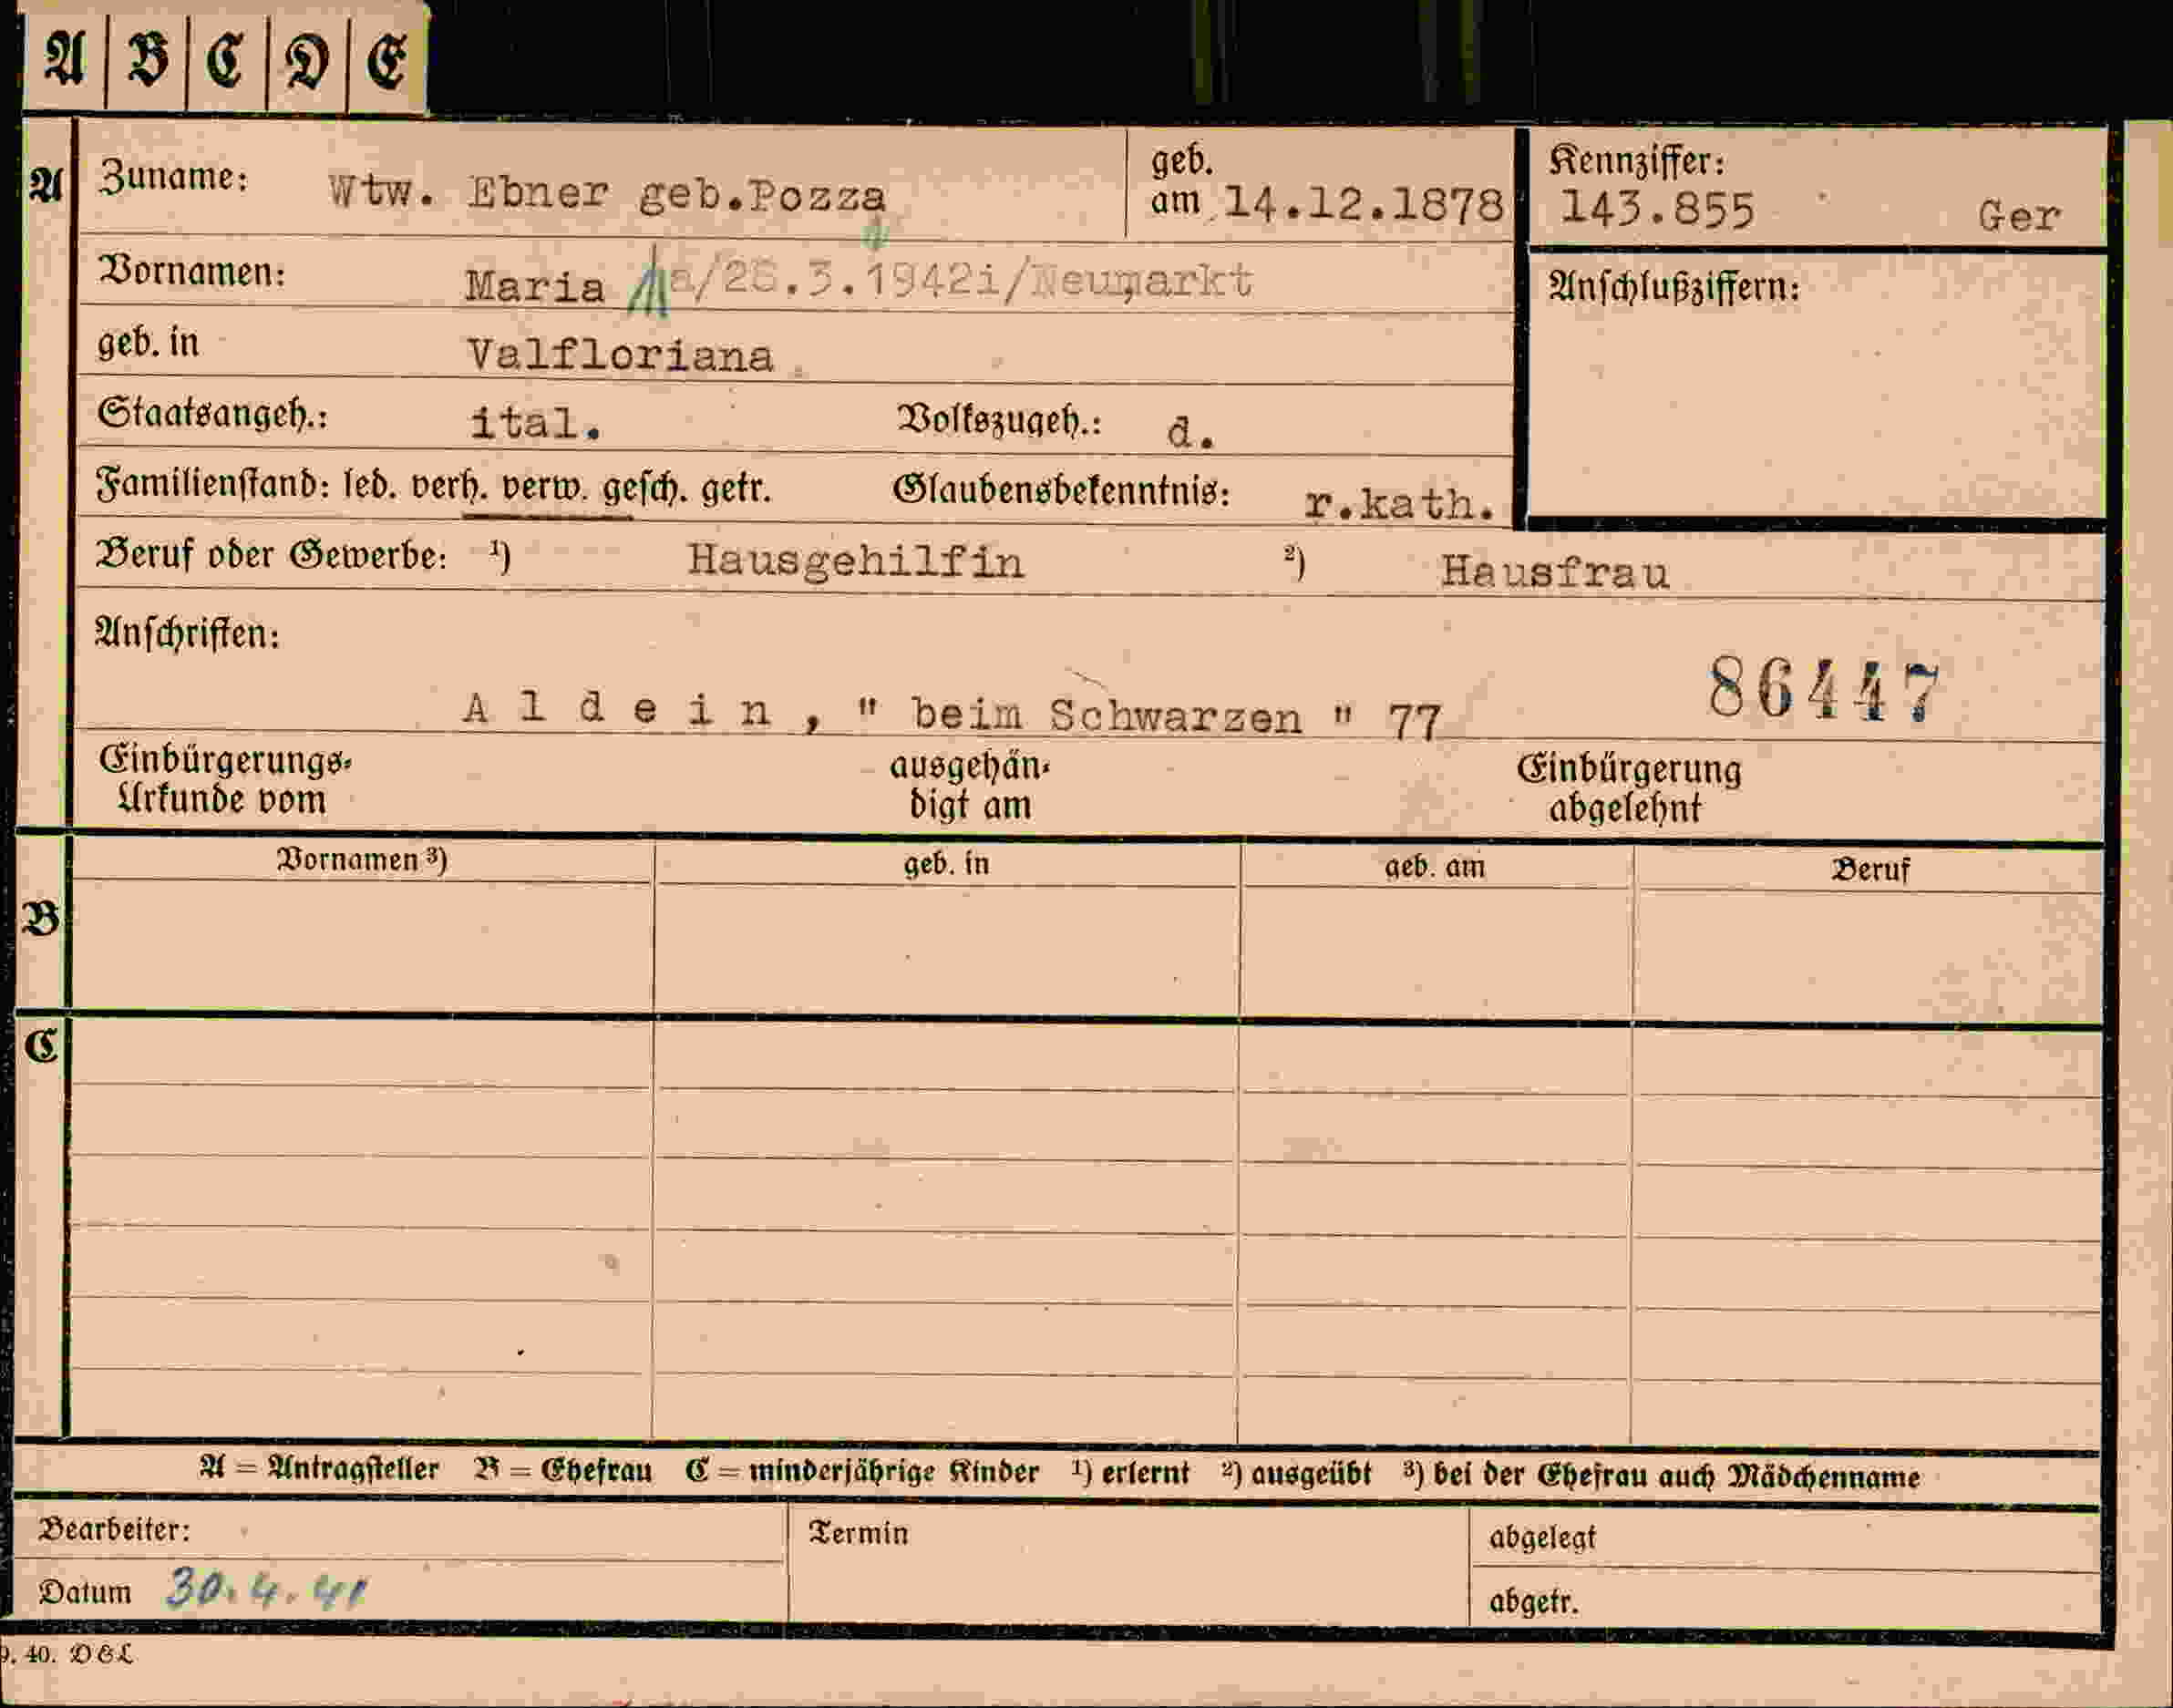 A B C D E
A Zuname: Wtw. Ebner geb.Pozza geb. am 14.12.1878 Kennziffer: 143.855 Ger
Vornamen: Maria /28.3.1942i/Neumarkt Anschlußziffern:
geb. in Valfloriana
Staatsangeh.: ital. Volkszugeh.: d.
Familienstand: led. verh. verw. gesch. getr. Glaubensbekenntnis: r.kath.
Beruf oder Gewerbe: ¹) Hausgehilfin ²) Hausfrau
Anschriften:
A l d e i n , " beim Schwarzen " 77 86447
Einbürgerungs- Urkunde vom ausgehän- digt am Einbürgerung abgelehnt
Vornamen ³) geb. in geb. am Beruf
B
C
A = Antragsteller B = Ehefrau C = minderjährige Kinder ¹) erlernt ²) ausgeübt ³) bei der Ehefrau auch Mädchenname
Bearbeiter: Termin abgelegt
Datum 30.4.41 abgetr.
9. 40. D & L